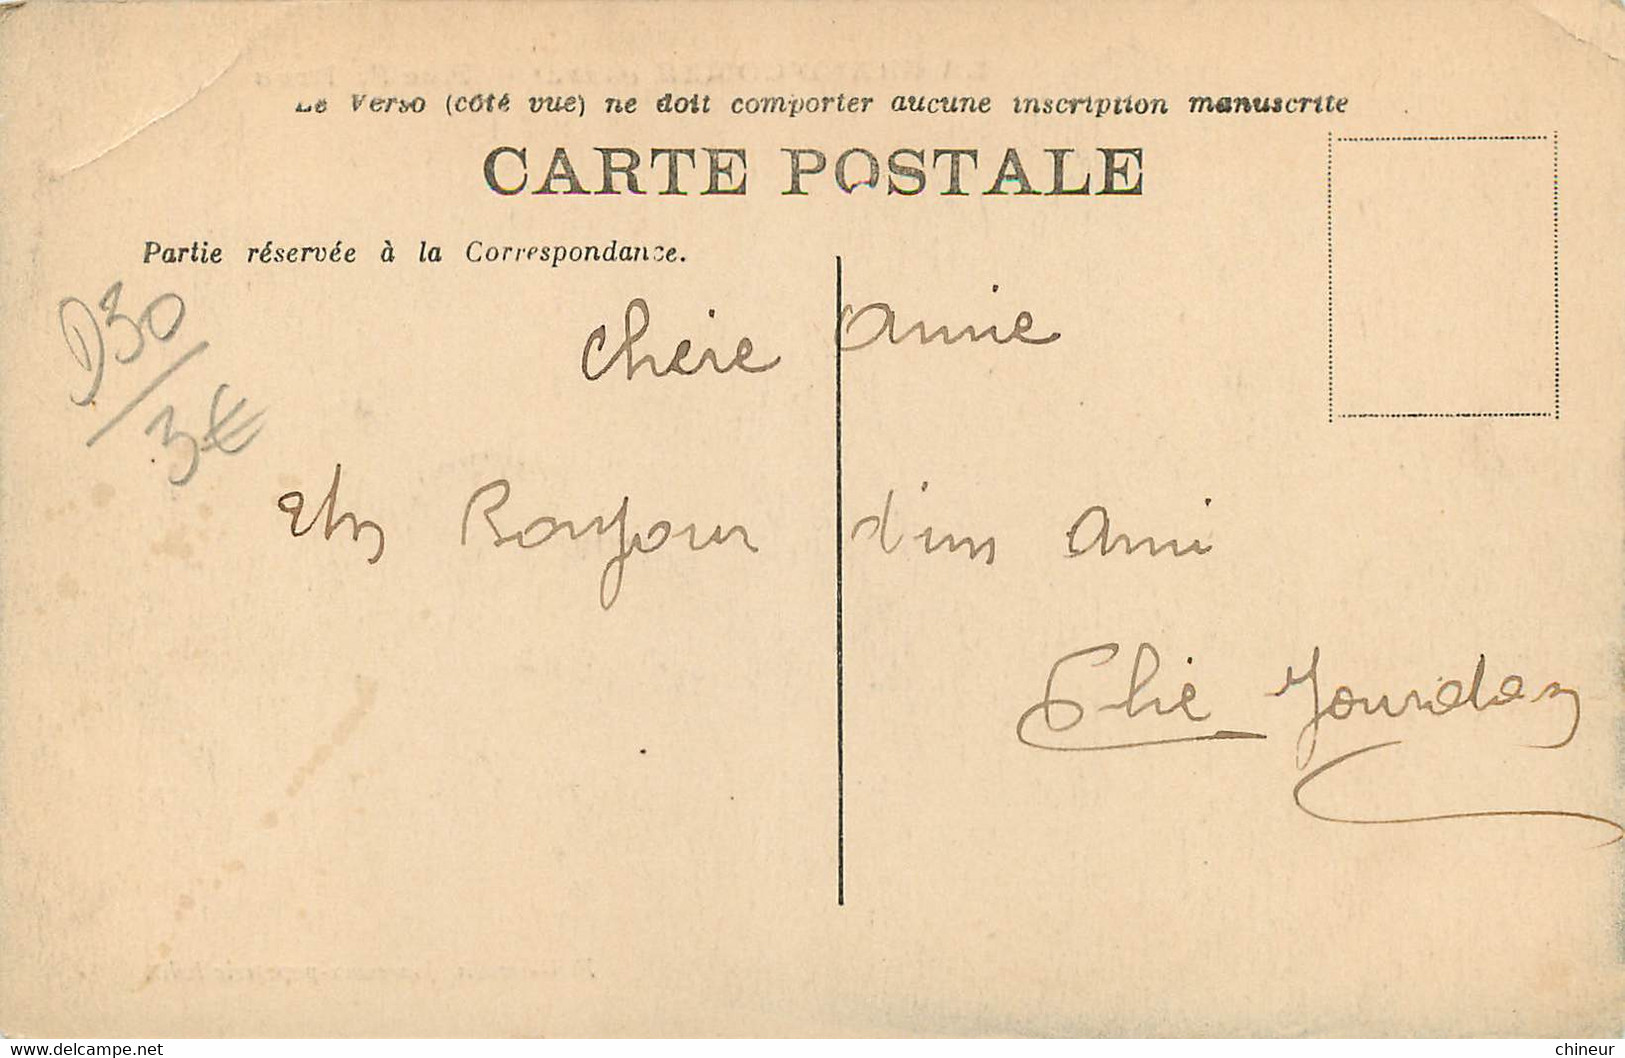 Le Verso (côté vue) ne doit comporter aucune inscription manuscrite
CARTE POSTALE
Partie réservée à la Correspondance.
D30
3€
Chère Amie
Un Bonjour d'un Ami
Elie Jourdan
chineur
delcampe.net